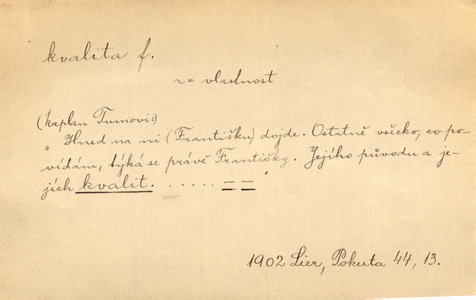 kvalita f.
~ = vlastnost
(kaplan Tumovi:)
„Hned na ni (Františku) dojde. Ostatně všecko, co po-
vídám, týká se právě Františky. Jejího původu a je-
jích kvalit. . . . . . = = "
1902 Lier, Pokuta 44, 13.